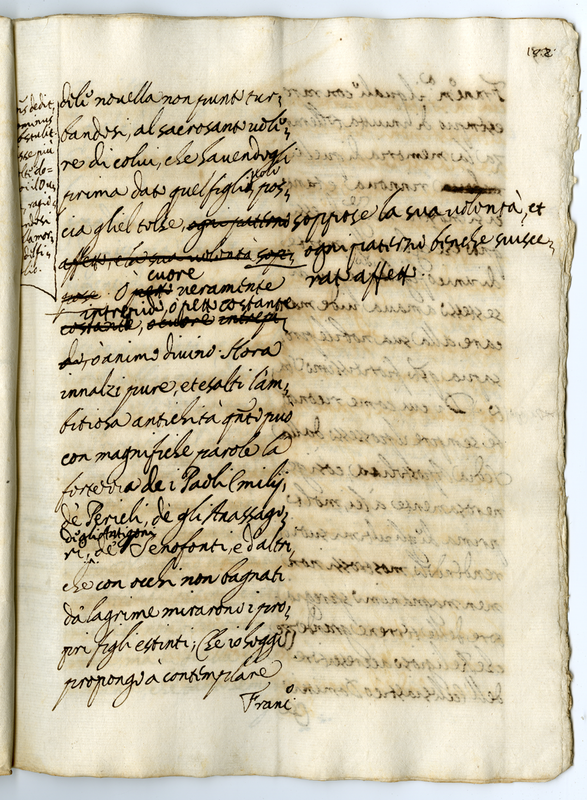 188
del nouella non punt tur,
bandosi, al sacrosant uole,
re di colui, che hauendogli
prima dat quel figlio, solo pos,
cia gliel tolse, ogni paterno soppose la sua uolontà, et
affett, e la sua uolontà sop, ogni paterno benche suisce,
pose. O cuore pett ueramente rat affett.
intrepido, ò pett costante
costante, o cuore intrepi,
do, ò animo diuino. Hora
innalzi pure, et esalti l'am,
bitiosa antichità qnt può
con magnifiche parole la
fortezza de i Paoli Emilij,
de Pericli, de gli Anassago,
de gli Antigoni
ri, de Senofonti, e d'altri,
che con occhi non bagnati
da lagrime mirarono i pro,
pri figli estinti; Che io hoggi
propongo à contemplare
Franc
ns dedit,
minus
abstulit